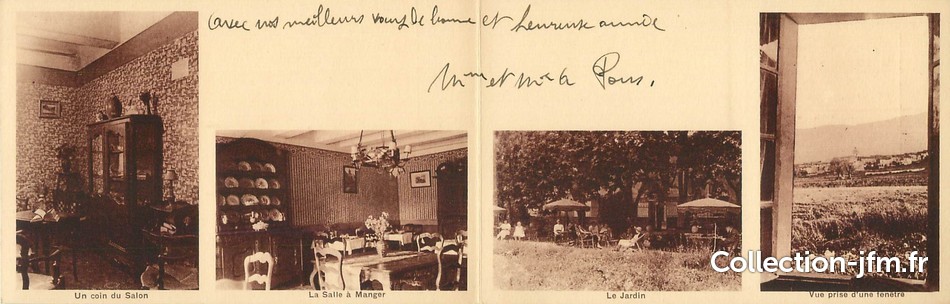 avec nos meilleurs vœux de bonne et heureuse année
Mme et Mr Pons.
Un coin du Salon
La Salle à Manger
Le Jardin
Vue prise d'une fenêtre
Collection-jfm.fr